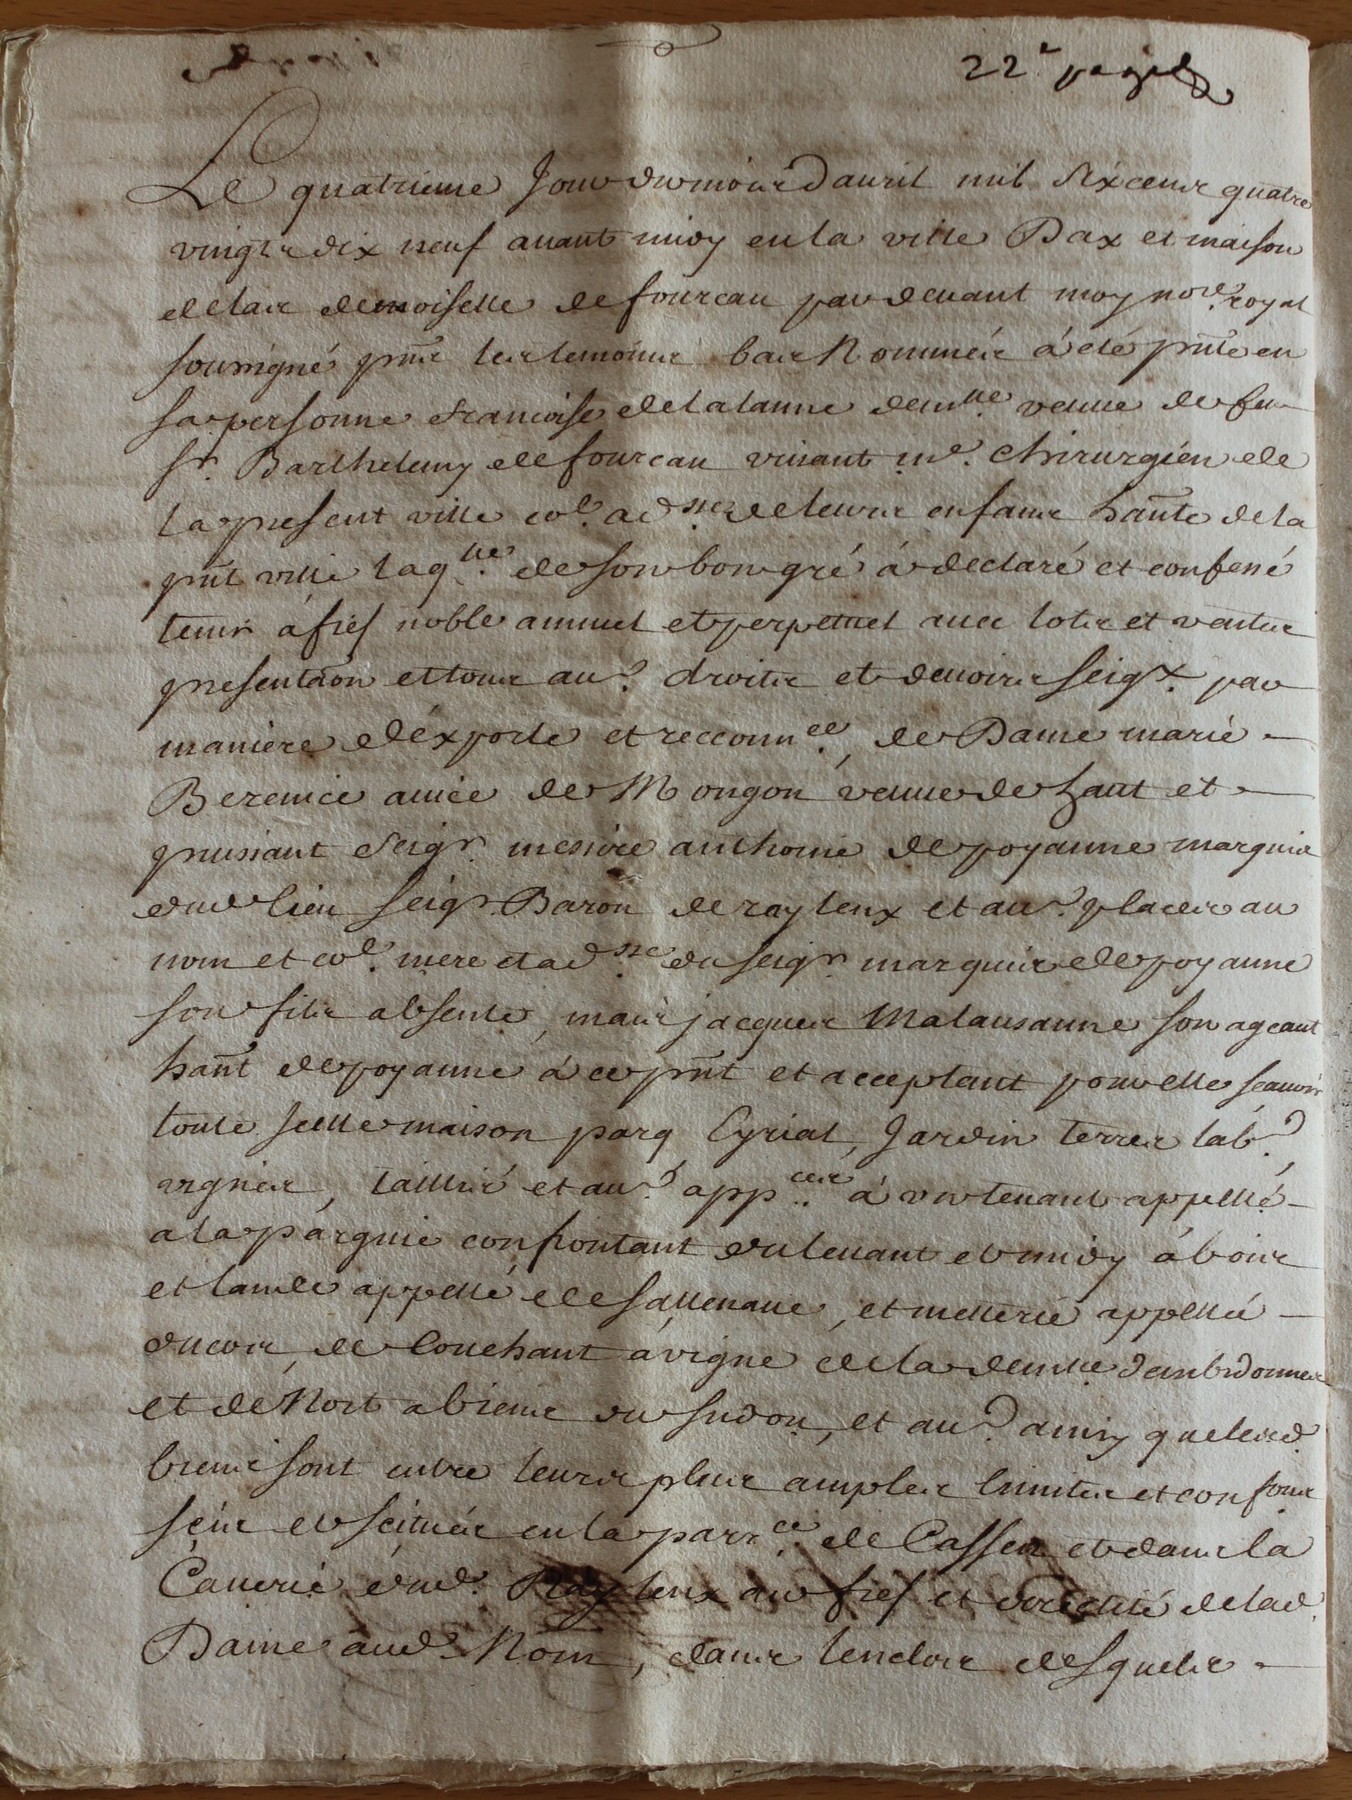 22.e page
Le quatrieme Jour du mois d'auril mil six cens quatre
vingts dix neuf auant midy en la ville Dax et maison
de la demoiselle de fourcau par deuant moy nore. royal
sousigné pnt les temoins bas Nommés à été pnte en
sa personne francoise de lalanne demlle veuue de feu
sr. Barthelemy de fourcau viuant me. chirurgien de
la present ville col. ad sse de leurs enfans hante de la
pnt ville laqlle de son bon gré à declaré et confessé
tenir à fief noble annuel et perpetuel auec lots et ventes
presentaon et tous aus. droits et deuoirs seigx. par
maniere d'exporle et reconnce, de Dame marie
Berenice auice de Mongon veuue de haut et
puissant seigr. messire anthoine de poyanne marquis
dud lieu seigr. Baron de rayleux et aus. places au
nom et col. mere et ad sse du seigr. marquis de poyanne
son fils absente, mais jacques Malausanne son ageant
hant de poyanne à ce pnt et acceptant pour elle scauoir
toute jcelle maison parq Eyrial, Jardin terres lab.
vignes, taillis et aus. appces à un tenant appellé
a la parguie confrontant du leuant et midy à bois
et lande appellé de sallenaue, et metterie appellée
ducor, de Couchant à vigne de la demlle
et de Nort a biens du sudon, et aus. ainsy que lesd.
biens sont entre leurs plus amples limites et confron
scis et scitués en la parrce de Cassen et dans la
Cauerie dud. Rayleux au fief et directité de lad.
Dame aud. Nom, dans lenclos desquels